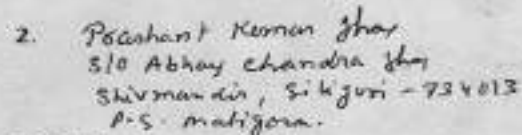 2. Prashant Kumar Jha
S/O Abhay Chandra Jha
Shivmandir, Siliguri - 734013
P.S. matigara.